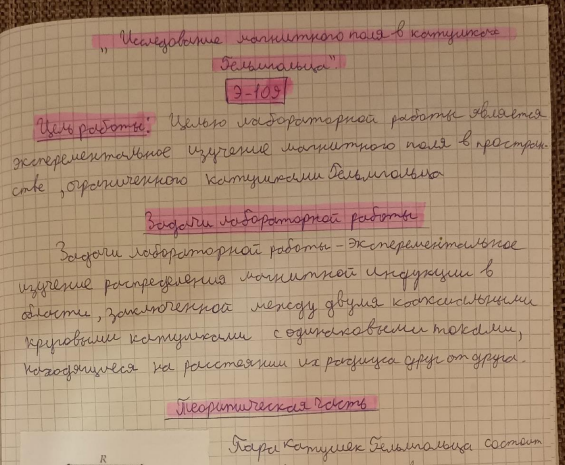 „Исследование магнитного поля в катушках
Гельмгольца"
Э-109
Цель работы: Целью лабораторной работы является
эксперементальное изучение магнитного поля в простран-
стве, ограниченного катушками Гельмгольца
Задачи лабораторной работы
Задачи лабораторной работы - эксперементальное
изучение распределения магнитной индукции в
области, заключенной между двумя коаксиальными
круговыми катушками с одинаковыми токами,
находящиеся на расстоянии их радиуса друг от друга.
Теоритическая часть
Пара катушек Гельмгольца состоит
R